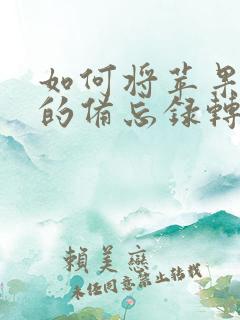 如何将苹果
的备忘录转
賴美戀
未经同意禁止转载